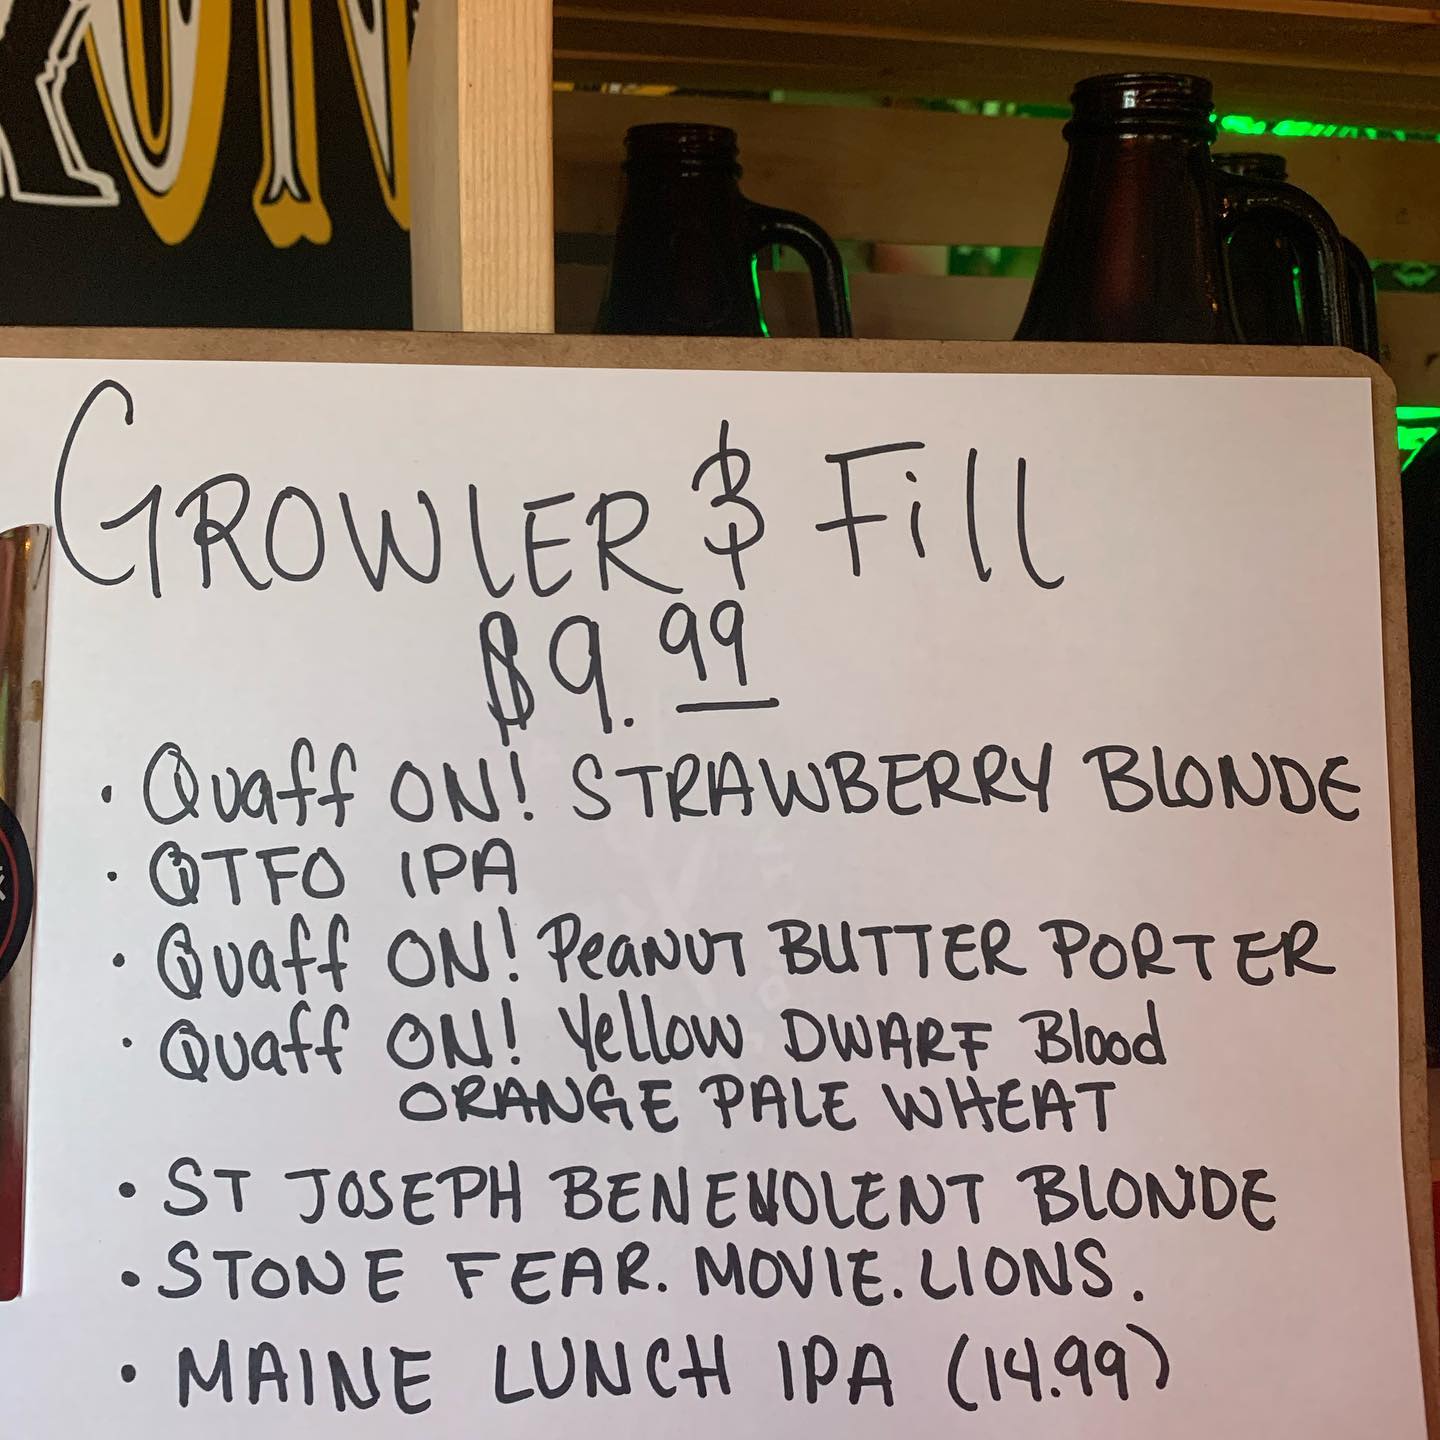 GROWLER & Fill
$9.99
• Quaff ON! STRAWBERRY BLONDE
• QTFO IPA
• Quaff ON! PEANUT BUTTER PORTER
• Quaff ON! Yellow DWARF Blood
ORANGE PALE WHEAT
• ST JOSEPH BENEVOLENT BLONDE
• STONE FEAR. MOVIE. LIONS.
• MAINE LUNCH IPA (14.99)